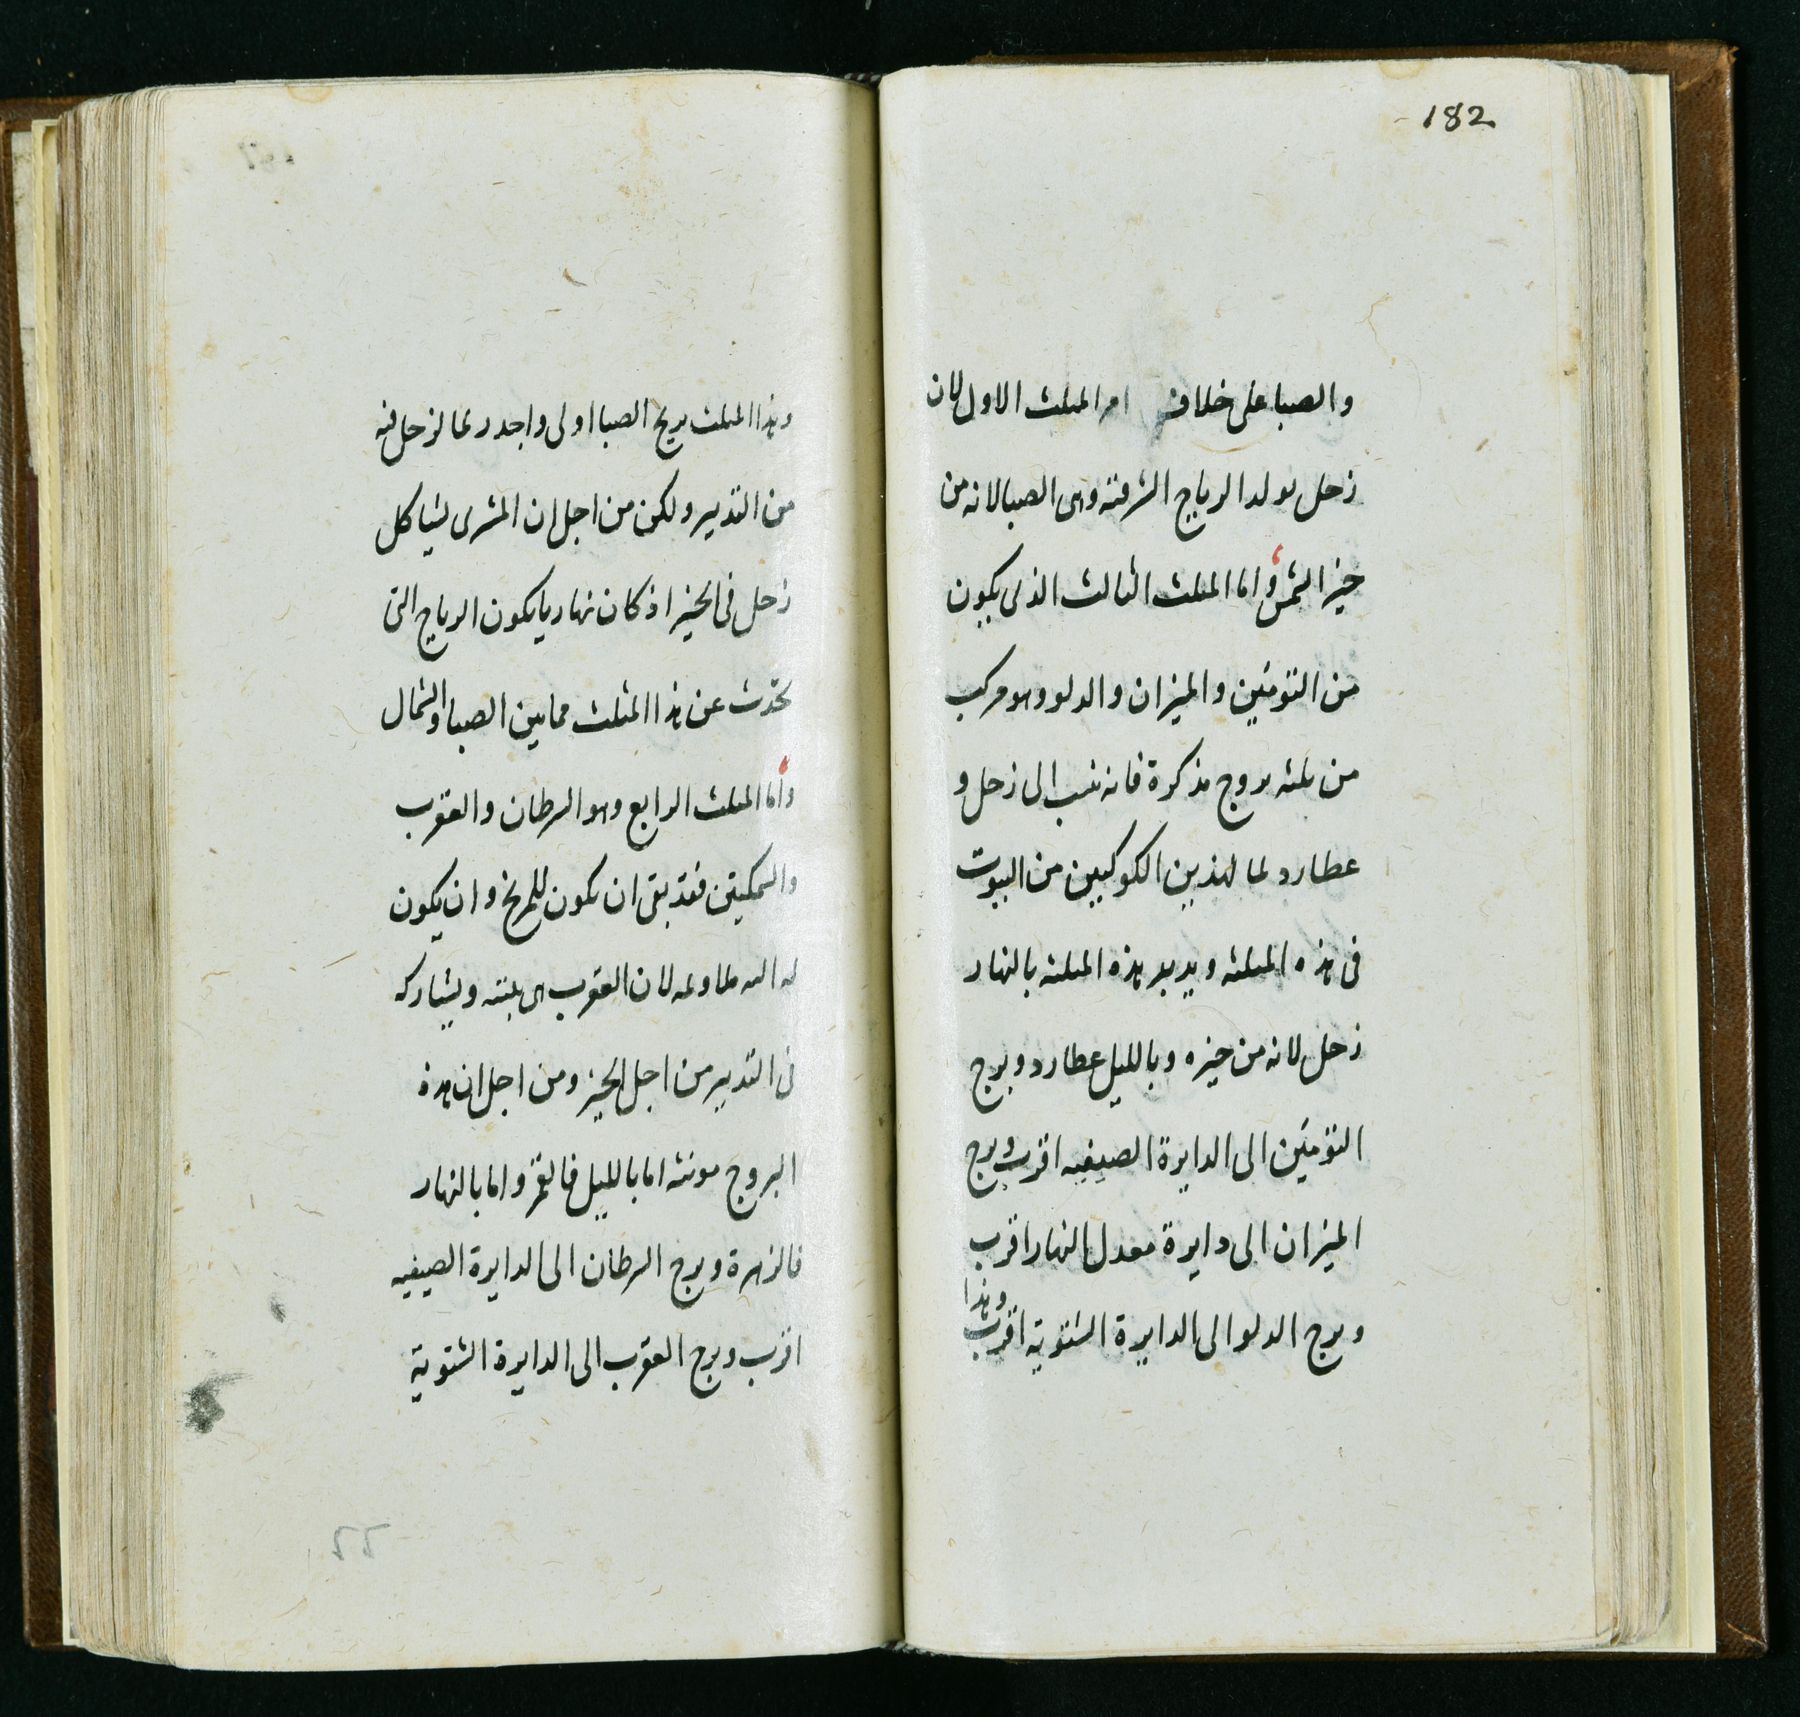 182
والصبا على خلاف امر المثلث الاول لان
زحل يولد الرياح الشرقية وهى الصبا لانه من
حيز الشمس واما المثلث الثالث الذى يكون
من التومين والميزان والدلو وهو مركب
من ثلثه بروج مذكرة فانه ينسب الى زحل و
عطارد لما لهذين الكوكبين من البيوت
فى هذه المثلثه ويدبر هذه المثلثه بالنهار
زحل لانه من حيزه وبالليل عطارد وبرج
التومين الى الدايرة الصيفيه اقرب وبرج
الميزان الى دايرة معدل النهار اقرب
وبرج الدلو الى الدايرة الشتوية اقرب وهذا
وهذا المثلث بريح الصبا اولى واجدر لما لزحل فيه
من التدبير ولكن من اجل ان المشترى يشاكل
زحل فى الحيز اذ كان نهاريا يكون الرياح التى
تحدث عن هذا المثلث مما بين الصبا والشمال
واما المثلث الرابع وهو السرطان والعقرب
والسمكتين فقد بقى ان يكون للمريخ وان يكون
له لان العقرب هى بيته ويشاركه
فى التدبير من اجل الحيز ومن اجل ان هذه
البروج مونثه اما بالليل فالقمر واما بالنهار
فالزهرة وبرج السرطان الى الدايرة الصيفيه
اقرب وبرج العقرب الى الدايرة الشتوية